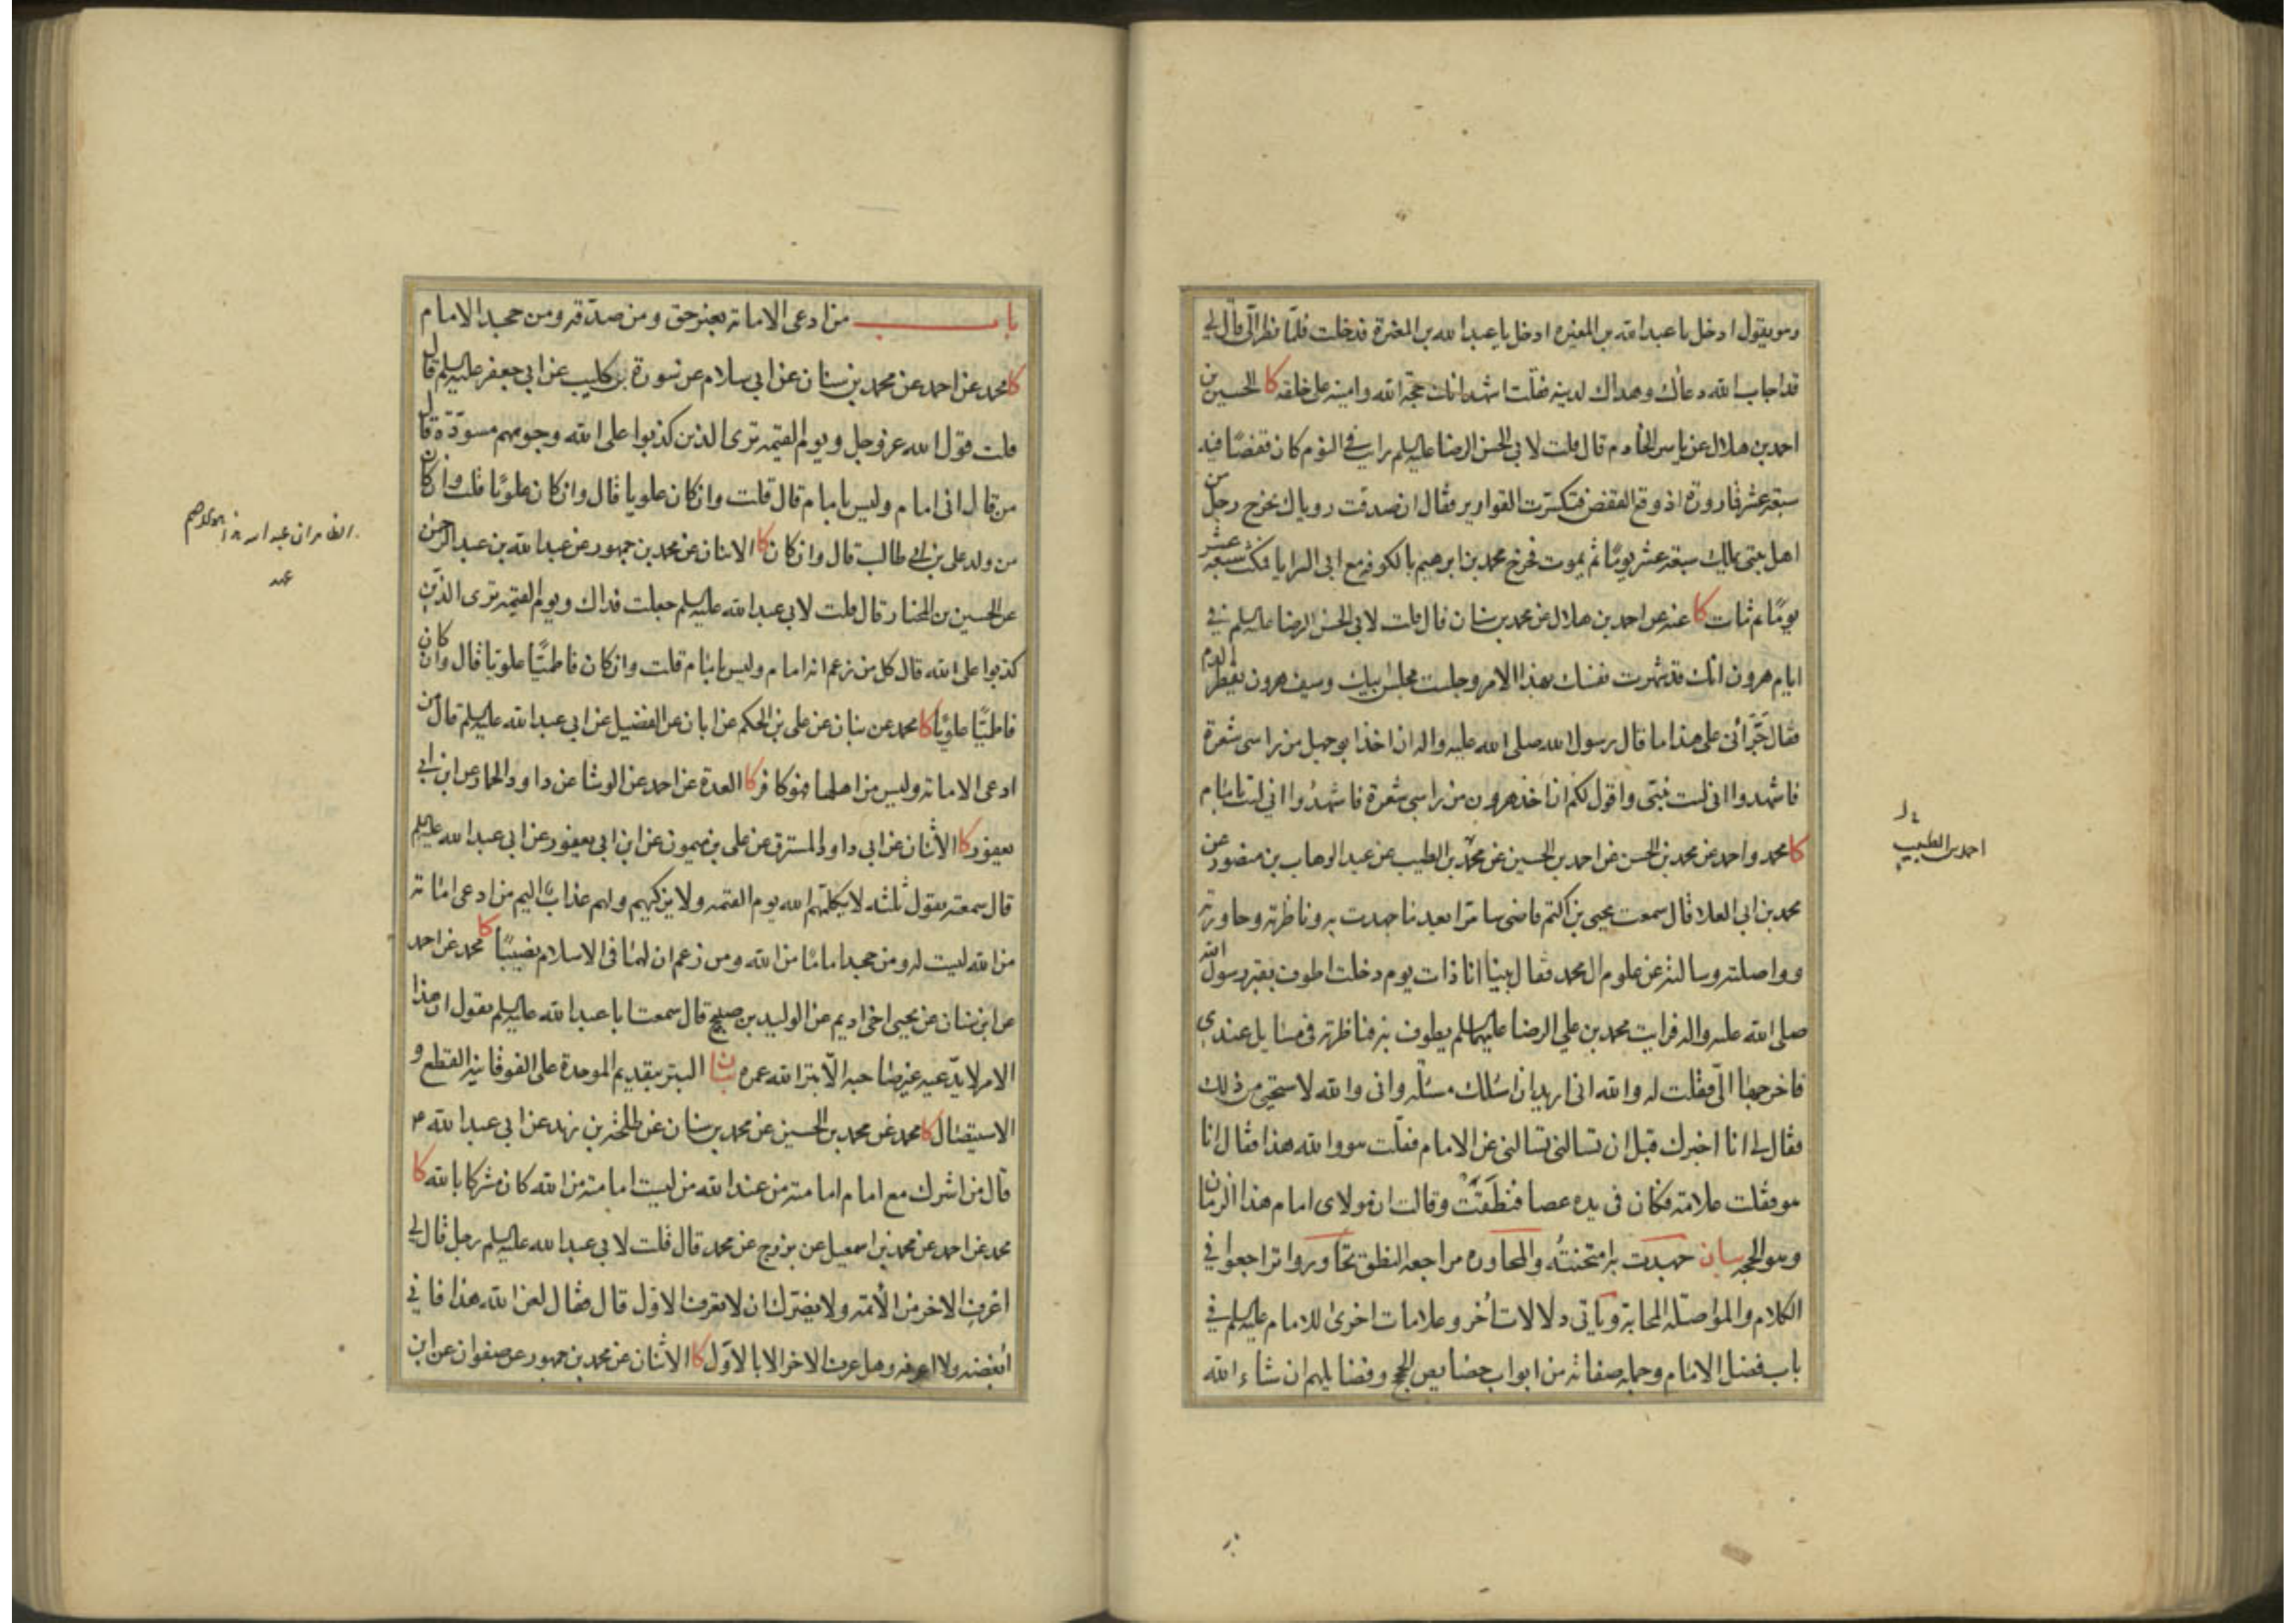 وهو يقول ادخل يا عبد الله بن المغيرة ادخل يا عبد الله بن المغيرة فدخلت فلما نظر الي قال لي
قد اجاب الله دعاك وهداك لدينه فقلت اشهد انك حجة الله وامينه على خلقه كا الحسين بن
احمد بن هلال عن ياسر الخادم قال قلت لابي الحسن الرضا عليه السلم رايت في النوم كان قفصا فيه
سبعة عشر قارورة اذ وقع القفص فتكسرت القوارير فقال ان صدقت روياك يخرج رجل من
اهل بيتى يملك سبعة عشر يوما ثم يموت فخرج محمد بن ابرهيم بالكوفه مع ابى السرايا فمكث سبعة عشر
يوما ثم مات كا عنه عن احمد بن هلال عن محمد بن سنان قال قلت لابي الحسن الرضا عليه السلم في
ايام هرون انك قد شهرت نفسك بهذا الامر وجلست مجلس ابيك وسيف هرون يقطر الدم
فقال جرأنى على هذا ما قال رسول الله صلى الله عليه واله ان اخذ ابو جهل من راسى شعرة
فاشهدوا انى لست بنبى وانا اقول لكم ان اخذ هرون من راسى شعرة فاشهدوا انى لست بامام
كا محمد واحمد عن محمد بن الحسن عن احمد بن الحسين عن محمد بن الطيب عن عبد الوهاب بن منصور عن
محمد بن ابى العلا قال سمعت يحيى بن اكثم قاضى سامرا بعد ما جهدت به وناظرته وحاورته
وواصلته وسالته عن علوم ال محمد فقال بينا انا ذات يوم دخلت اطوف بقبر رسول الله
صلى الله عليه واله فرايت محمد بن علي الرضا عليهما السلم يطوف به فناظرته فى مسايل عندي
فاخرجها الى فقلت له والله انى اريد ان اسئلك مسئلة وانى والله لاستحيى من ذلك
فقال لي انا اخبرك قبل ان تسالنى تسالنى عن الامام فقلت هو والله هذا فقال انا
هو فقلت علامة فكان فى يده عصا فنطقت وقالت ان مولاى امام هذا الزمان
وهو الحجه بيان جهدت به امتحنته والمحاوره مراجعة النطق تحاوروا تراجعوا في
الكلام والمواصله المحابة وياتى دلالات اخر وعلامات اخرى للامام عليه السلم في
باب فضل الامام وجملة صفاته من ابواب خصايص الحجج وفضايلهم ان شاء الله
احمد بن الطيب
باب من ادعى الامامة بغير حق ومن صدقه ومن جحد الامام
كا محمد عن احمد عن محمد بن سنان عن ابي سلام عن سورة بن كليب عن ابي جعفر عليه السلم قال
قلت قول الله عز وجل ويوم القيمة ترى الذين كذبوا على الله وجوههم مسودة قال
من قال انى امام وليس بامام قال قلت وان كان علويا قال وان كان علويا قلت وان كان
من ولد على بن ابي طالب قال وان كان كا الاثنان عن محمد بن جمهور عن عبد الله بن عبد الرحمن
عن الحسين بن المختار قال قلت لابي عبد الله عليه السلم جعلت فداك ويوم القيمة ترى الذين
كذبوا على الله قال كل من زعم انه امام وليس بامام قلت وان كان فاطميا علويا قال وان كان
فاطميا علويا كا محمد عن بنان عن على بن الحكم عن ابان عن الفضيل عن ابي عبد الله عليه السلم قال من
ادعى الامامة وليس من اهلها فهو كافر كا العدة عن احمد عن الوشا عن داود الحمار عن ابن ابي
يعفور كا الاثنان عن ابى داود المسترق عن على بن ميمون عن ابن ابى يعفور عن ابى عبد الله عليه السلم
قال سمعته يقول ثلثه لا يكلمهم الله يوم القيمه ولا يزكيهم ولهم عذاب اليم من ادعى امامة
من الله ليست له ومن جحد اماما من الله ومن زعم ان لهما فى الاسلام نصيبا كا محمد عن احمد
عن ابن سنان عن يحيى اخى اديم عن الوليد بن صبيح قال سمعت ابا عبد الله عليه السلم يقول ان هذا
الامر لا يدعيه غير صاحبه الا بتر الله عمره بيان البتر بتقديم الموحدة على الفوقانيه القطع و
الاستيصال كا محمد عن محمد بن الحسين عن محمد بن سنان عن طلحة بن زيد عن ابي عبد الله ع
قال من اشرك مع امام امامته من عند الله من ليست امامته من الله كان مشركا بالله كا
محمد عن احمد عن محمد بن اسمعيل عن بزرج عن محمد قال قلت لابي عبد الله عليه السلم رجل قال لي
اعرف الاخر من الائمة ولا يضرك ان لا تعرف الاول قال فقال لعن الله هذا فاني
ابغضه ولا اعرفه وهل عرف الاخر الا بالاول كا الاثنان عن محمد بن جمهور عن صفوان عن ابن